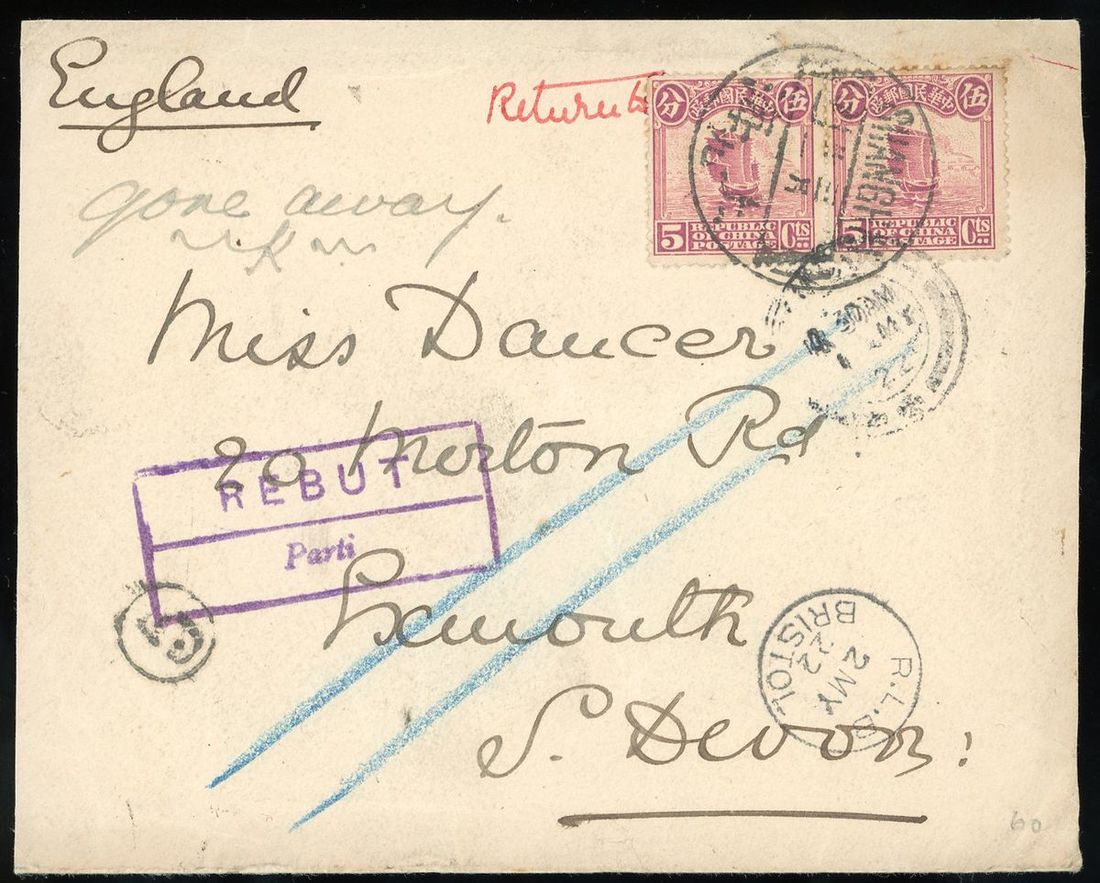 England
Return to
分 中華民國郵政 伍
分 中華民國郵政 伍
5 REPUBLIC OF CHINA POSTAGE Cts
5 REPUBLIC OF CHINA POSTAGE Cts
SHANGHAI
gone away.
30AM
MY
22
Miss Dancer
20 Morton Rd
REBUT
Parti
Exmouth
S. Devon.
R.L.O.
2 MY
22
BRISTOL
60